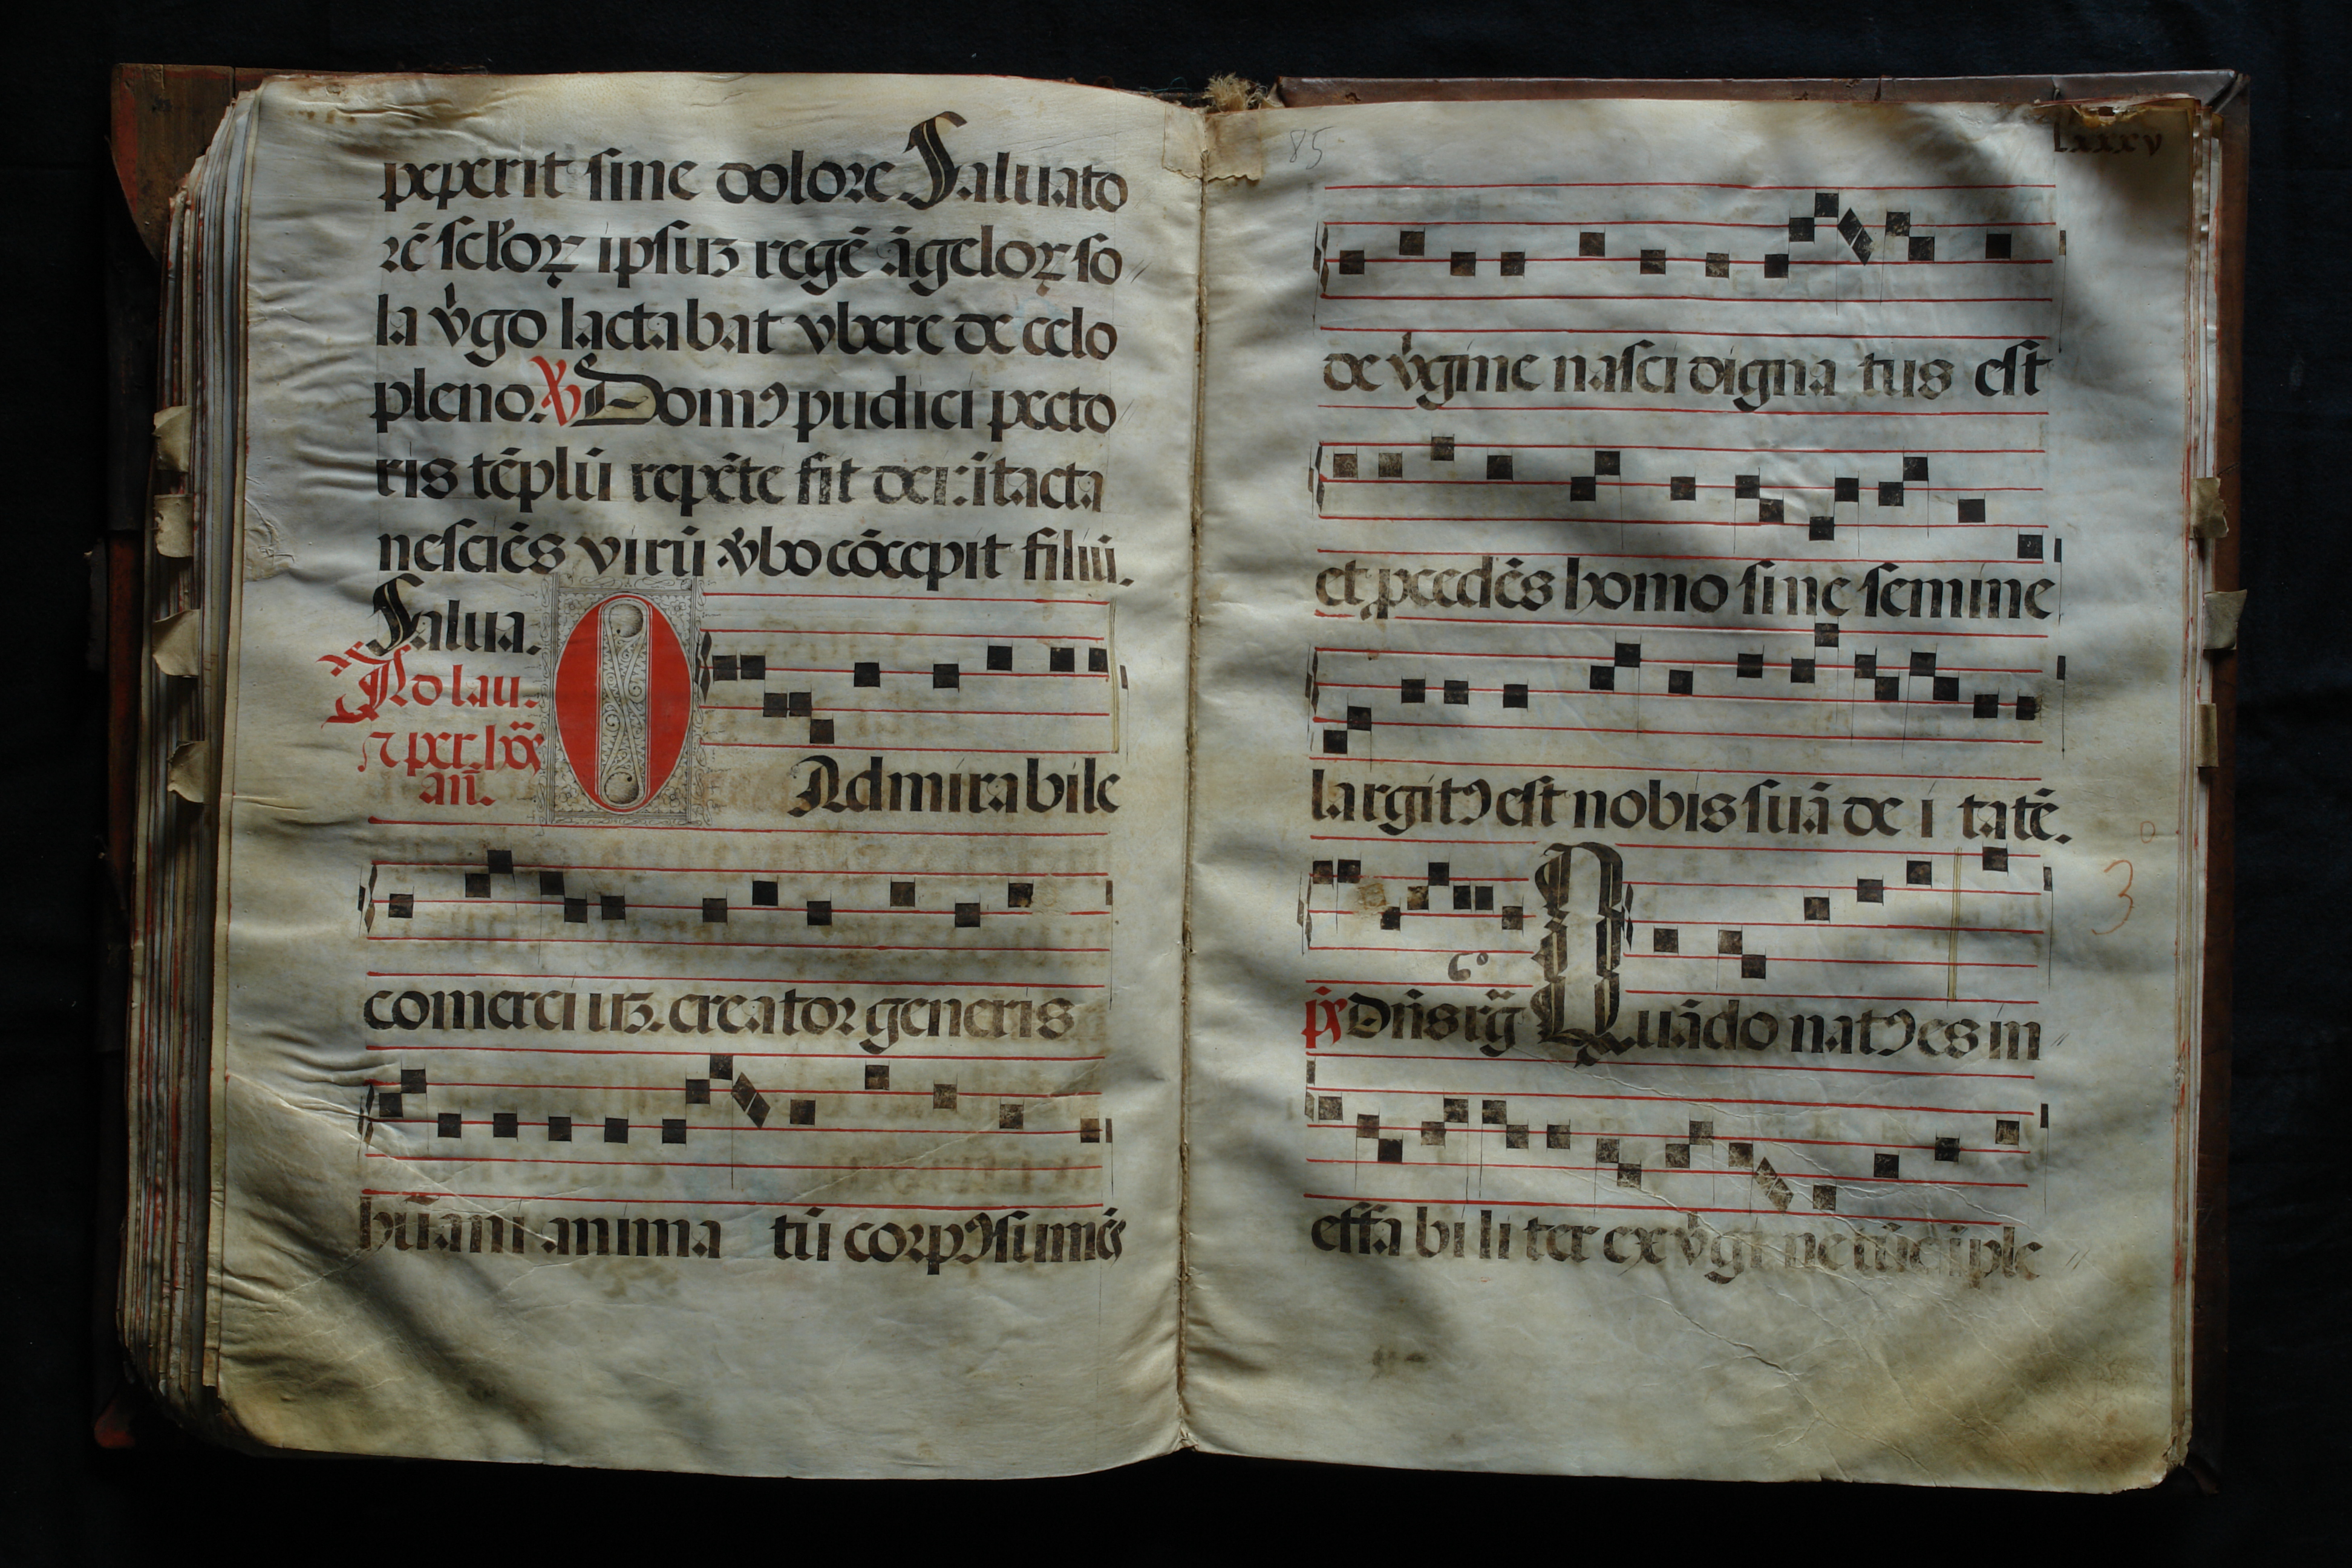 peperit sine dolore Saluato
rē sctõꝝ ipsuꝫ regē āgeloꝝ so
la v̾go lactabat vbere de celo
pleno. ℣ Domꝰ pudici pecto
ris tēplū repēte fit dei: ītacta
nesciēs virū v̾bo cōcepit filiū.
Salua.
Ad lau.
⁊ per. hōs
añ.
O Admirabile
comerciuꝫ. creator generis
hūani anima tū corpꝰ sumēs
85
lxxxv
de v̾gine nasci digna tus est
et ꝓcedēs homo sine semine
largitꝰ est nobis suā de i tatē.
p̄s Dñs rḡ Quādo natꝰ es in
3
effa bi li ter ex v̾gi ne tūc īple